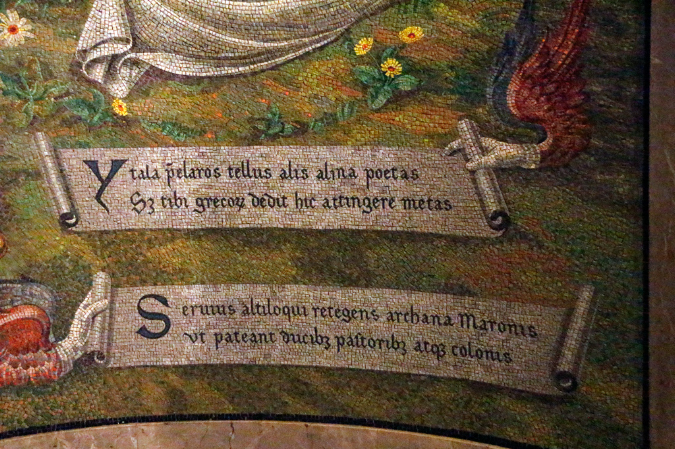 Ytala p̄elaros tellus alis alma poetas
Sꝫ tibi grecoꝝ dedit hic attingere metas
Seruius altiloqui retegens archana Maronis
vt pateant ducibꝫ pastoribꝫ atqꝫ colonis